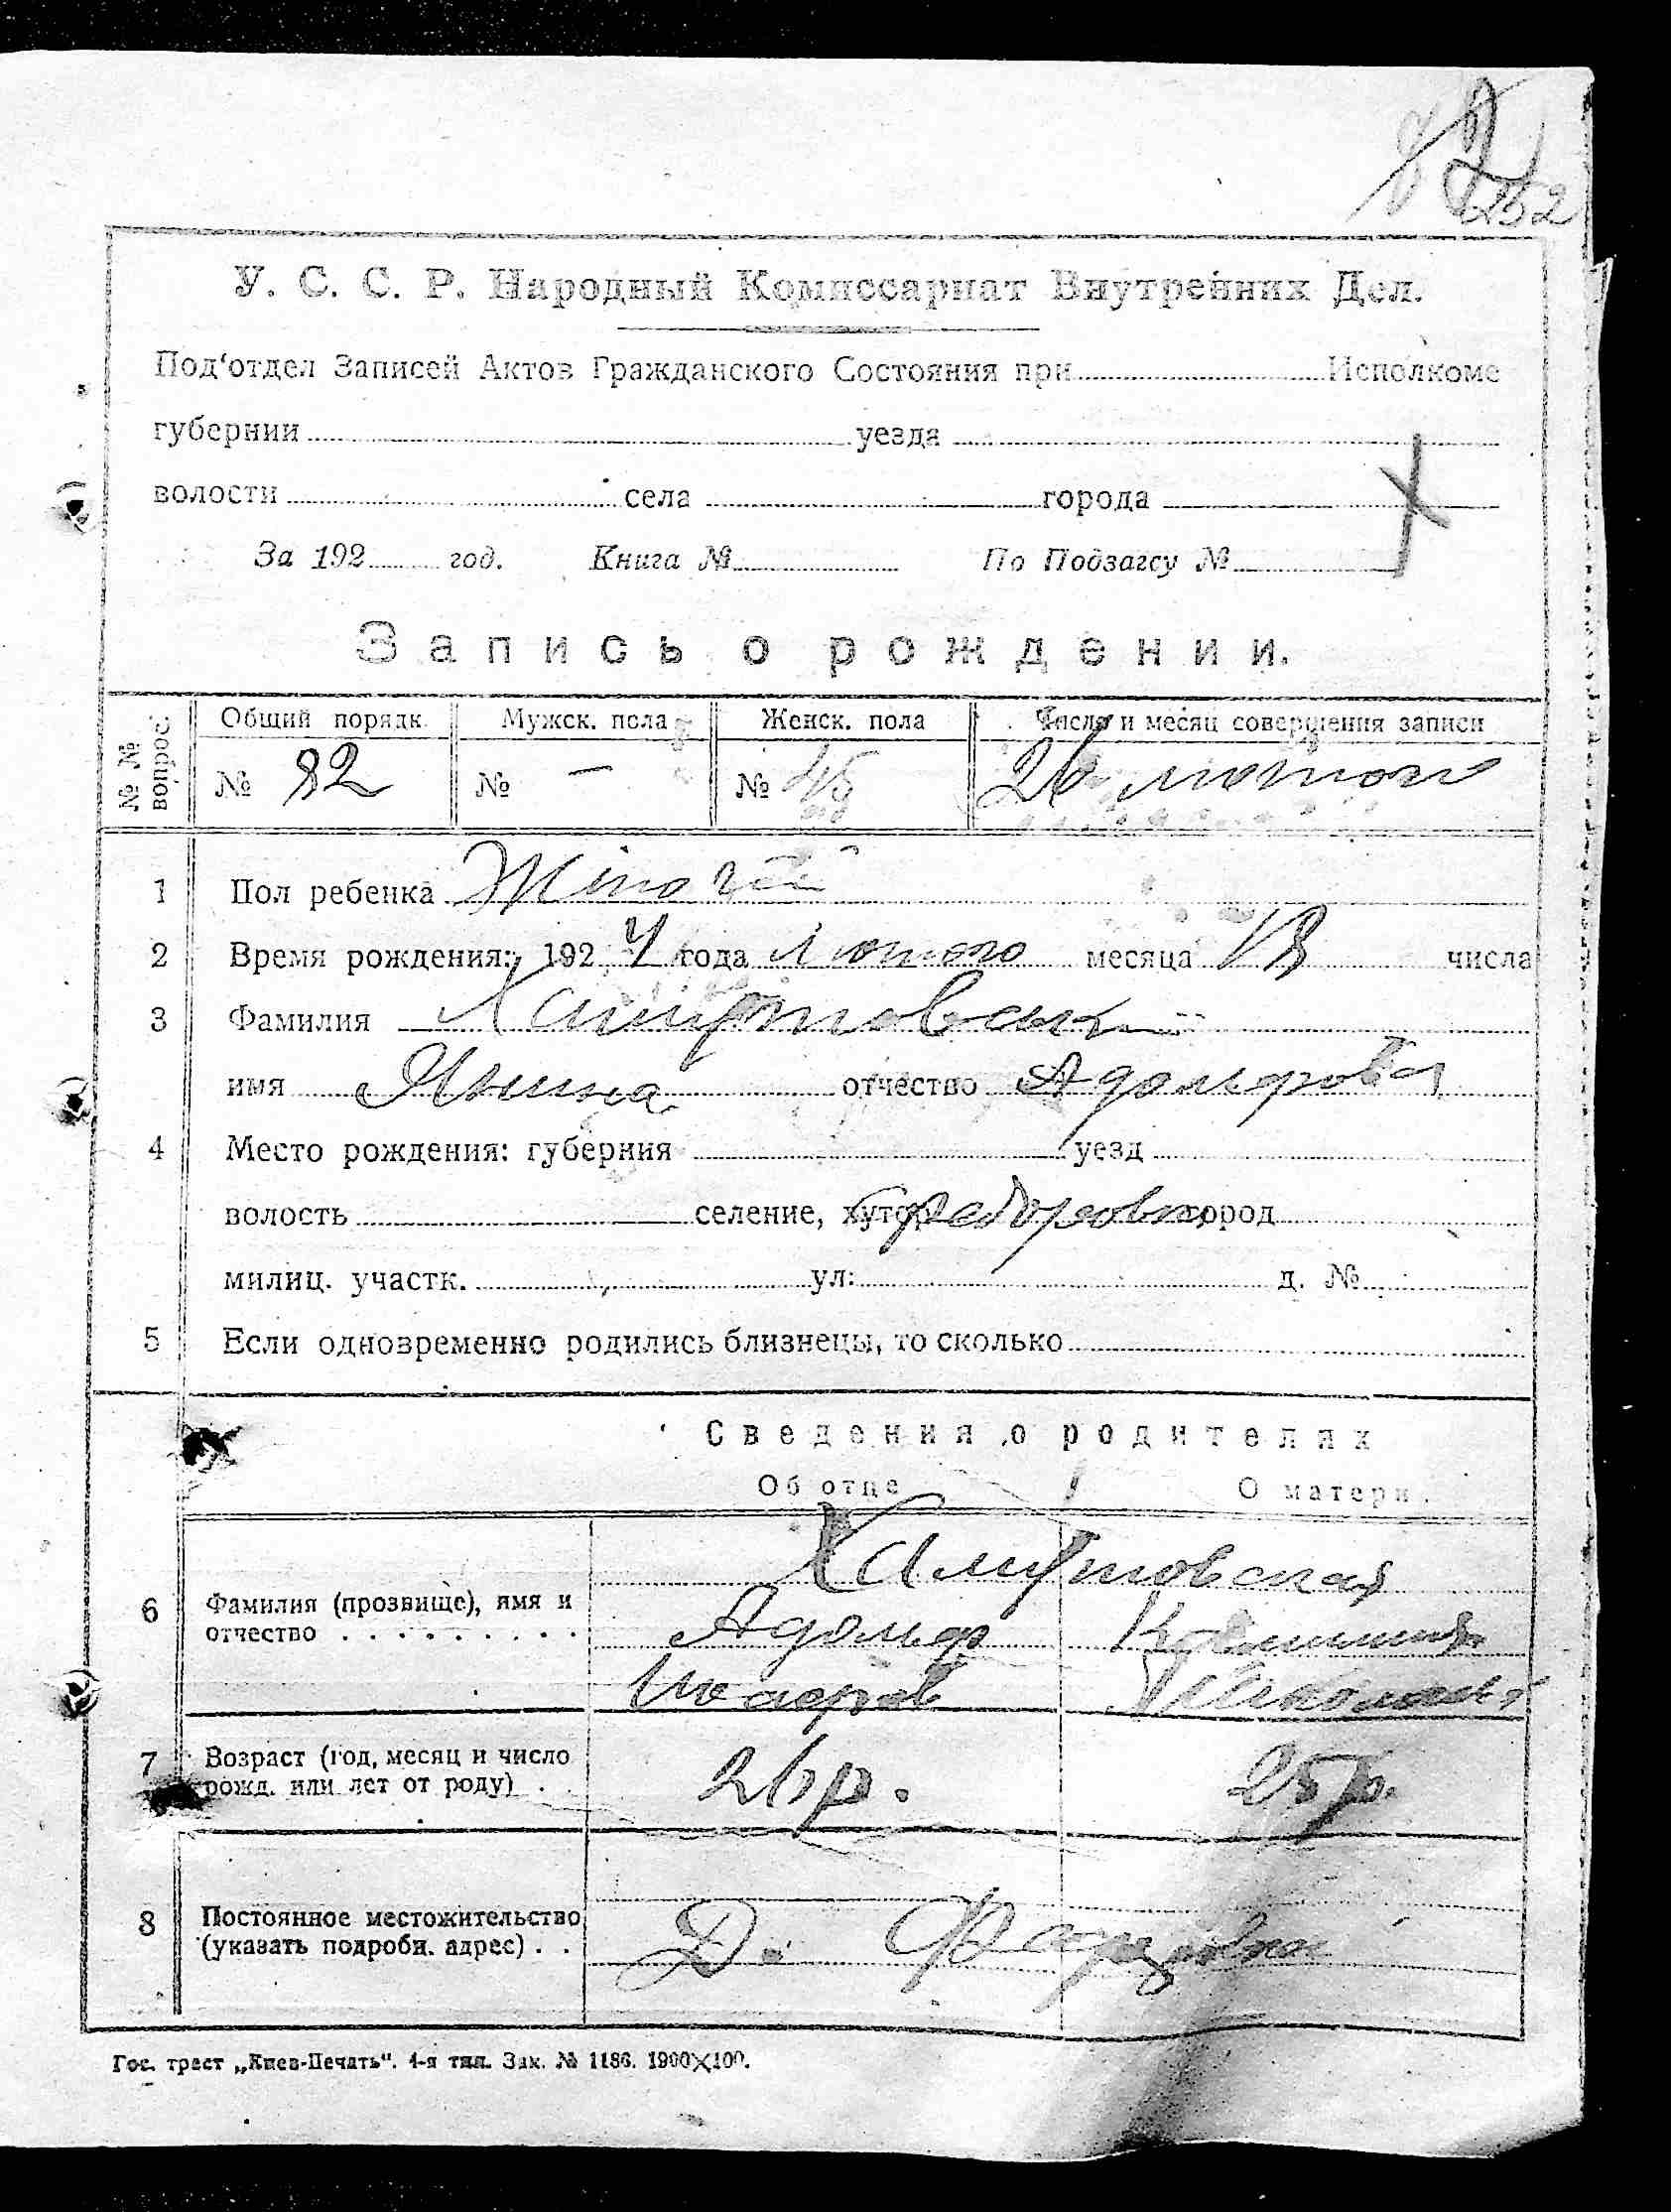 252
У. С. С. Р. Народный Комиссариат Внутренних Дел.
Под‘отдел Записей Актов Гражданского Состояния при Исполкоме
губернии уезда
волости села города
За 192 год. Книга № По Подзагсу №
Запись о рождении.
№ № вопрос. Общий порядк. Мужск. пола Женск. пола Число и месяц совершения записи
№ 82 № — № 26 лютого
1 Пол ребенка Жіноча
2 Время рождения: 1924 года лютого месяца 18 числа
3 Фамилия
имя Янина отчество Адольфовна
4 Место рождения: губерния уезд
волость селение, хутор город
милиц. участк. ул: д. №
5 Если одновременно родились близнецы, то сколько
Сведения о родителях
Об отце О матери.
6 Фамилия (прозвище), имя и отчество
Адольф
7 Возраст (год, месяц и число рожд. или лет от роду) 26 р. 25 р.
8 Постоянное местожительство (указать подробн. адрес)
Гос. трест „Киев-Печать“. 4-я тип. Зак. № 1186. 1900×100.